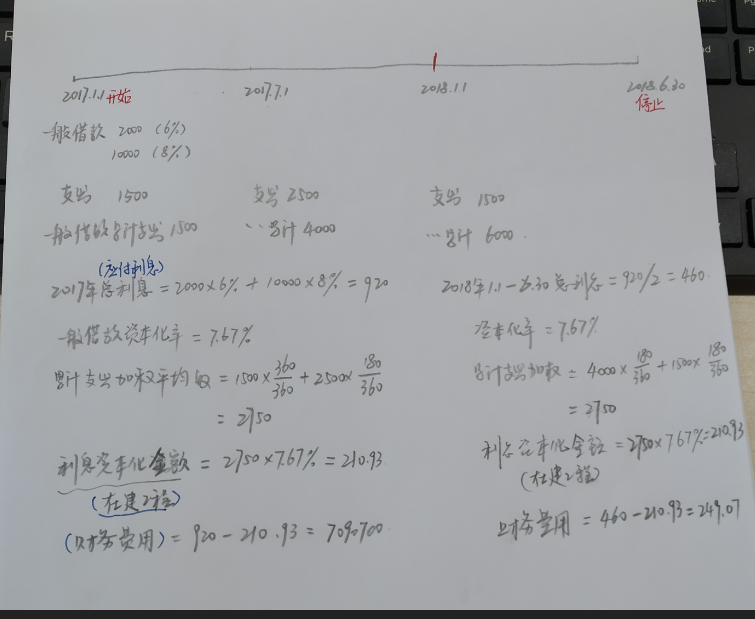 2017.1.1 开始 2017.7.1 2018.1.1 2018.6.30
停止
一般借款 2000 (6%)
10000 (8%)
支出 1500 支出 2500 支出 1500
一般借款累计支出 1500 ··累计 4000 ···累计 6000.
(应付利息)
2017年总利息 = 2000×6% + 10000×8% = 920 2018年1.1-6.30总利息 = 920/2 = 460.
一般借款资本化率 = 7.67% 资本化率 = 7.67%
累计支出加权平均数 = 1500×360/360 + 2500×180/360 累计支出加权 = 4000×180/360 + 1500×180/360
= 2750 = 2750
利息资本化金额 = 2750×7.67% = 210.93 利息资本化金额 = 2750×7.67% = 210.93
(在建工程) (在建工程)
(财务费用) = 920 - 210.93 = 7090700 财务费用 = 460 - 210.93 = 249.07